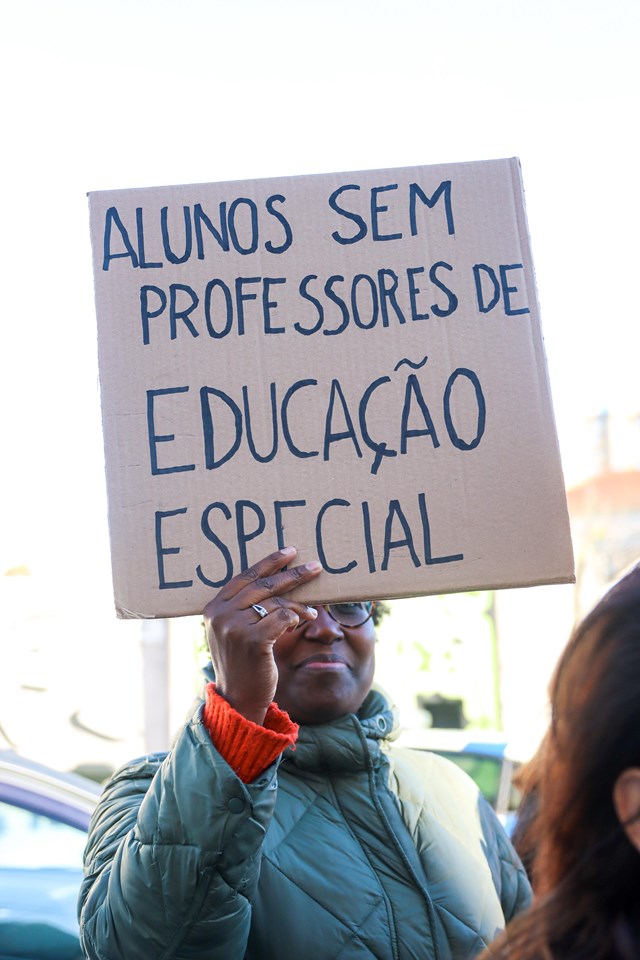 ALUNOS SEM
PROFESSORES DE
EDUCAÇÃO
ESPECIAL